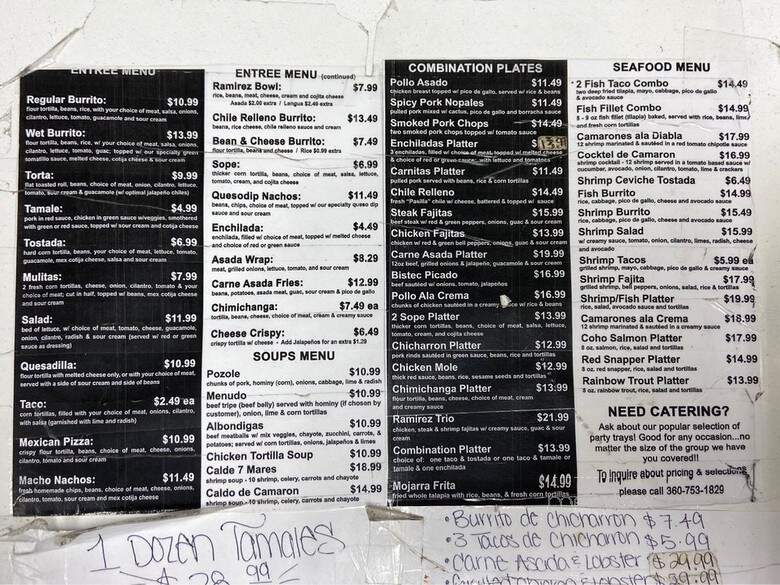 ENTREE MENU
Regular Burrito: $10.99
flour tortilla, beans, rice, with your choice of meat, salsa, onions,
cilantro, lettuce, tomato, guacamole and sour cream
Wet Burrito: $13.99
flour tortilla, beans, rice, w/ your choice of meat, salsa, onions,
cilantro, lettuce, tomato, guac; topped w/ our specialty green
tomatillo sauce, melted cheese, cotija cheese & sour cream
Torta: $9.99
flat toasted roll, beans, choice of meat, onion, cilantro, lettuce,
tomato, sour cream & guacamole (w/ optional jalapeño chiles)
Tamale: $4.99
pork in red sauce, chicken in green sauce w/veggies, smothered
with green or red sauce, topped w/ sour cream and cotija cheese
Tostada: $6.99
hard corn tortilla, beans, your choice of meat, lettuce, tomato,
guacamole, mex cotija cheese, salsa and sour cream
Mulitas: $7.99
2 fresh corn tortillas, cheese, onion, cilantro, tomato & your
choice of meat; cut in half, topped w/ beans, mex cotija cheese
and sour cream
Salad: $11.99
bed of lettuce, w/ choice of meat, tomato, cheese, guacamole,
onion, cilantro, radish & sour cream (served w/ red or green
sauce as dressing)
Quesadilla: $10.99
flour tortilla with melted cheese only, or with your choice of meat,
served with a side of sour cream and side of beans
Taco: $2.49 ea
corn tortillas, filled with your choice of meat, onions, cilantro,
with salsa (garnished with lime and radish)
Mexican Pizza: $10.99
crispy flour tortilla, beans, choice of meat, cheese, onions,
cilantro, tomato and sour cream
Macho Nachos: $11.49
fresh homemade chips, beans, choice of meat, cheese, onions,
cilantro, tomato, sour cream and mex cotija cheese
ENTREE MENU (continued)
Ramirez Bowl: $7.99
rice, beans, meat, cheese, cream and cojita cheese
Asada $2.00 extra / Lengua $2.49 extra
Chile Relleno Burrito: $13.49
beans, rice cheese, chile relleno sauce and cream
Bean & Cheese Burrito: $7.49
flour tortilla, beans and cheese / Rice $0.99 extra
Sope: $6.99
thicker corn tortilla, beans, choice of meat, salsa, lettuce,
tomato, cream, and cojita cheese
Quesodip Nachos: $11.49
beans, chips, choice of meat, topped w/ our specialty queso dip
sauce and sour cream
Enchilada: $4.49
enchilada, filled w/ choice of meat, topped w/ melted cheese
and choice of red or green sauce
Asada Wrap: $8.29
meat, grilled onions, lettuce, tomato, and sour cream
Carne Asada Fries: $12.99
beans, potatoes, asada meat, guac, sour cream & pico de gallo
Chimichanga: $7.49 ea
tortilla, beans, choice of meat, cheese & creamy sauce
Cheese Crispy: $6.49
crispy tortilla w/ cheese - Add Jalapeños for an extra $1.29
SOUPS MENU
Pozole $10.99
chunks of pork, hominy (corn), onions, cabbage, lime & radish
Menudo $10.99
beef tripe (beef belly) served with hominy (if chosen by
customer), onion, lime & corn tortillas
Albondigas $10.99
beef meatballs w/ mix veggies, chayote, zucchini, carrots, &
potatoes; served w/ corn tortillas, onions, jalapeños & limes
Chicken Tortilla Soup $10.99
Calde 7 Mares $18.99
shrimp soup - 10 shrimp, celery, carrots and chayote
Caldo de Camaron $14.99
shrimp soup - 10 shrimp, celery, carrots and chayote
COMBINATION PLATES
Pollo Asado $11.49
chicken breast topped w/ pico de gallo, served w/ rice & beans
Spicy Pork Nopales $11.49
pulled pork mixed w/ cactus, pico de gallo and borracha sauce
Smoked Pork Chops $14.49
two smoked pork chops topped w/ tomato sauce
Enchiladas Platter
3 enchiladas, filled w/ choice of meat, topped w/ melted cheese
& choice of red or green sauce; with lettuce and tomatoes
Carnitas Platter $11.49
pulled pork served with beans, rice & corn tortillas
Chile Relleno $14.49
fresh "Pasilla" chile w/ cheese, battered & topped w/ sauce
Steak Fajitas $15.99
beef steak w/ red & green peppers, onions, guac & sour cream
Chicken Fajitas $13.99
chicken w/ red & green bell peppers, onions, guac & sour cream
Carne Asada Platter $19.99
12oz beef, grilled onions & jalapeño, guacamole & sour cream
Bistec Picado $16.99
beef sautéed w/ onions, tomato, jalapeños
Pollo Ala Crema $16.99
chunks of chicken sautéed in a creamy sauce w/ rice & beans
2 Sope Platter $13.99
thicker corn tortillas, beans, choice of meat, salsa, lettuce,
tomato, cream, and cojita cheese
Chicharron Platter $12.99
pork rinds sautéed in green sauce, beans, rice and tortillas
Chicken Mole $12.99
thick red sauce, beans, rice, sesame seeds and tortillas
Chimichanga Platter $13.99
flour tortilla, beans, cheese, choice of meat, cream
and creamy sauce
Ramirez Trio $21.99
chicken, steak & shrimp fajitas w/ creamy sauce, guac & sour
cream
Combination Platter $13.99
choice of: one taco & tostada or one taco & tamale or
tamale & one enchilada
Mojarra Frita $14.99
fried whole talapia with rice, beans, & fresh corn tortillas
SEAFOOD MENU
2 Fish Taco Combo $14.49
two deep fried tilapia, mayo, cabbage, pico de gallo
& avocado sauce
Fish Fillet Combo $14.99
8 - 9 oz fish filet (tilapia) baked, served with rice, beans, lime,
and fresh corn tortillas
Camarones ala Diabla $17.99
12 shrimp marinated & sautéed in a red tomato chipotle sauce
Cocktel de Camaron $16.99
shrimp cocktail - 12 shrimp served in a tomato based sauce w/
cucumber, avocado, onion, cilantro, tomato, lime & crackers
Shrimp Ceviche Tostada $6.49
Fish Burrito $14.99
rice, cabbage, pico de gallo, cheese and avocado sauce
Shrimp Burrito $15.49
rice, cabbage, pico de gallo, cheese and avocado sauce
Shrimp Salad $15.99
w/ creamy sauce, tomato, onion, cilantro, limes, radish, cheese
and avocado
Shrimp Tacos $5.99 ea
grilled shrimp, mayo, cabbage, pico de gallo & creamy sauce
Shrimp Fajita $17.99
grilled shrimp, bell peppers, onions, salad, rice & tortillas
Shrimp/Fish Platter $19.99
rice, salad, avocado sauce and tortillas
Camarones ala Crema $18.99
12 shrimp marinated & sautéed in a creamy sauce
Coho Salmon Platter $17.99
8 oz, salmon, rice, salad and tortillas
Red Snapper Platter $14.99
8 oz. red snapper, rice, salad and tortillas
Rainbow Trout Platter $13.99
8 oz. rainbow trout, rice, salad and tortillas
NEED CATERING?
Ask about our popular selection of
party trays! Good for any occasion...no
matter the size of the group we have
you covered!!
To inquire about pricing & selections
please call 360-753-1829
1 Dozen Tamales
• Burrito de chicharron $7.49
• 3 Tacos de Chicharron $5.99
• Carne Asada & Lobster $29.99